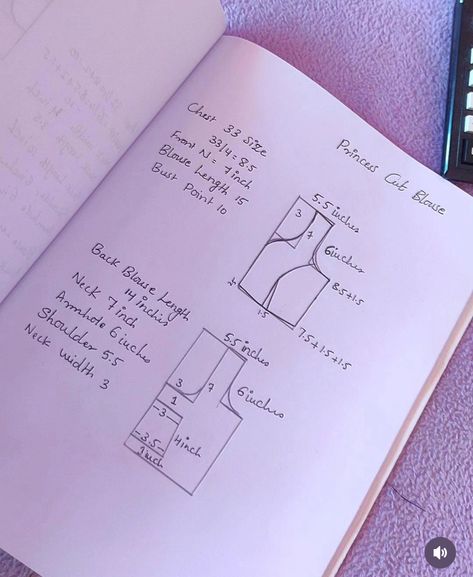 Princess Cut Blouse
Chest 33 Size
33/4 = 8.5
Front N = 7 inch
Blouse Length 15
Bust Point 10
5.5 inches
3
7
6 inches
8.5+1.5
1.5
7.5+1.5+1.5
Back Blouse Length
14 inches
Neck 7 inch
Armhole 6 inches
Shoulder 5.5
Neck width 3
5.5 inches
3
7
6 inches
1
-3-
4 inch
-3.5-
1 inch